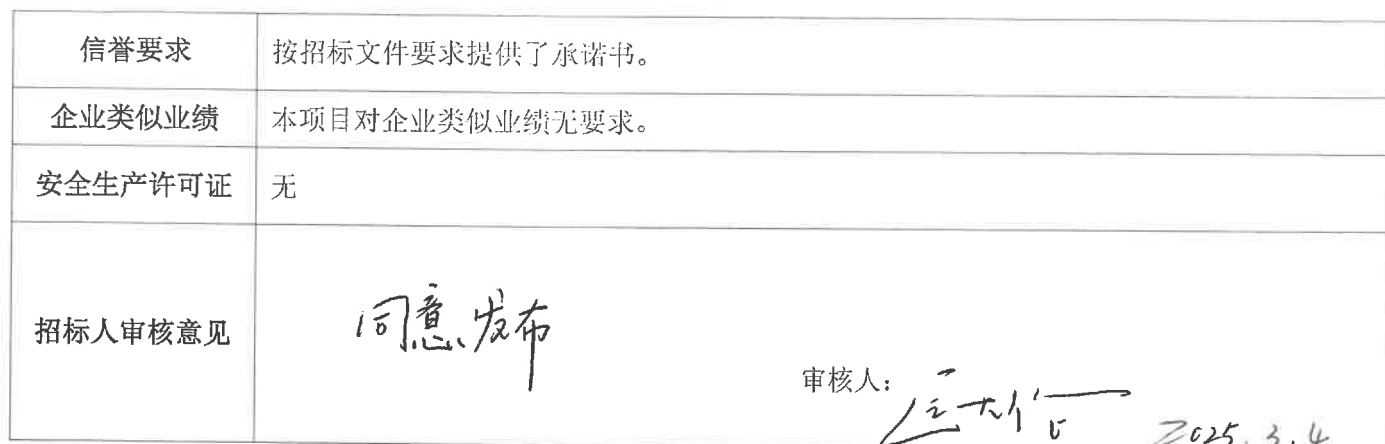 信誉要求 按招标文件要求提供了承诺书。
企业类似业绩 本项目对企业类似业绩无要求。
安全生产许可证 无
招标人审核意见 同意发布
审核人:
2025.3.4